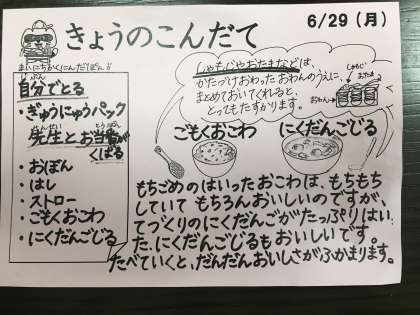 きょうのこんだて
6/29（月）
まいにちかくにんだぽん♪
自分でとる
じぶん
・ぎゅうにゅうパック
先生とお当番が
せんせい
とうばん
くばる
・おぼん
・はし
・ストロー
・ごもくおこわ
・にくだんごじる
しゃもじやおたまなどは、
かたづけおわったおわんのうえに、
まとめておいてくれると、
とってもたすかります。
しゃもじ
おたま
おわん
ごもくおこわ
にくだんごじる
もちごめのはいったおこわは、もちもち
していてもちろんおいしいのですが、
てづくりのにくだんごがたっぷりはいっ
た、にくだんごじるもおいしいです。
たべていくと、だんだんおいしさがふかまります。